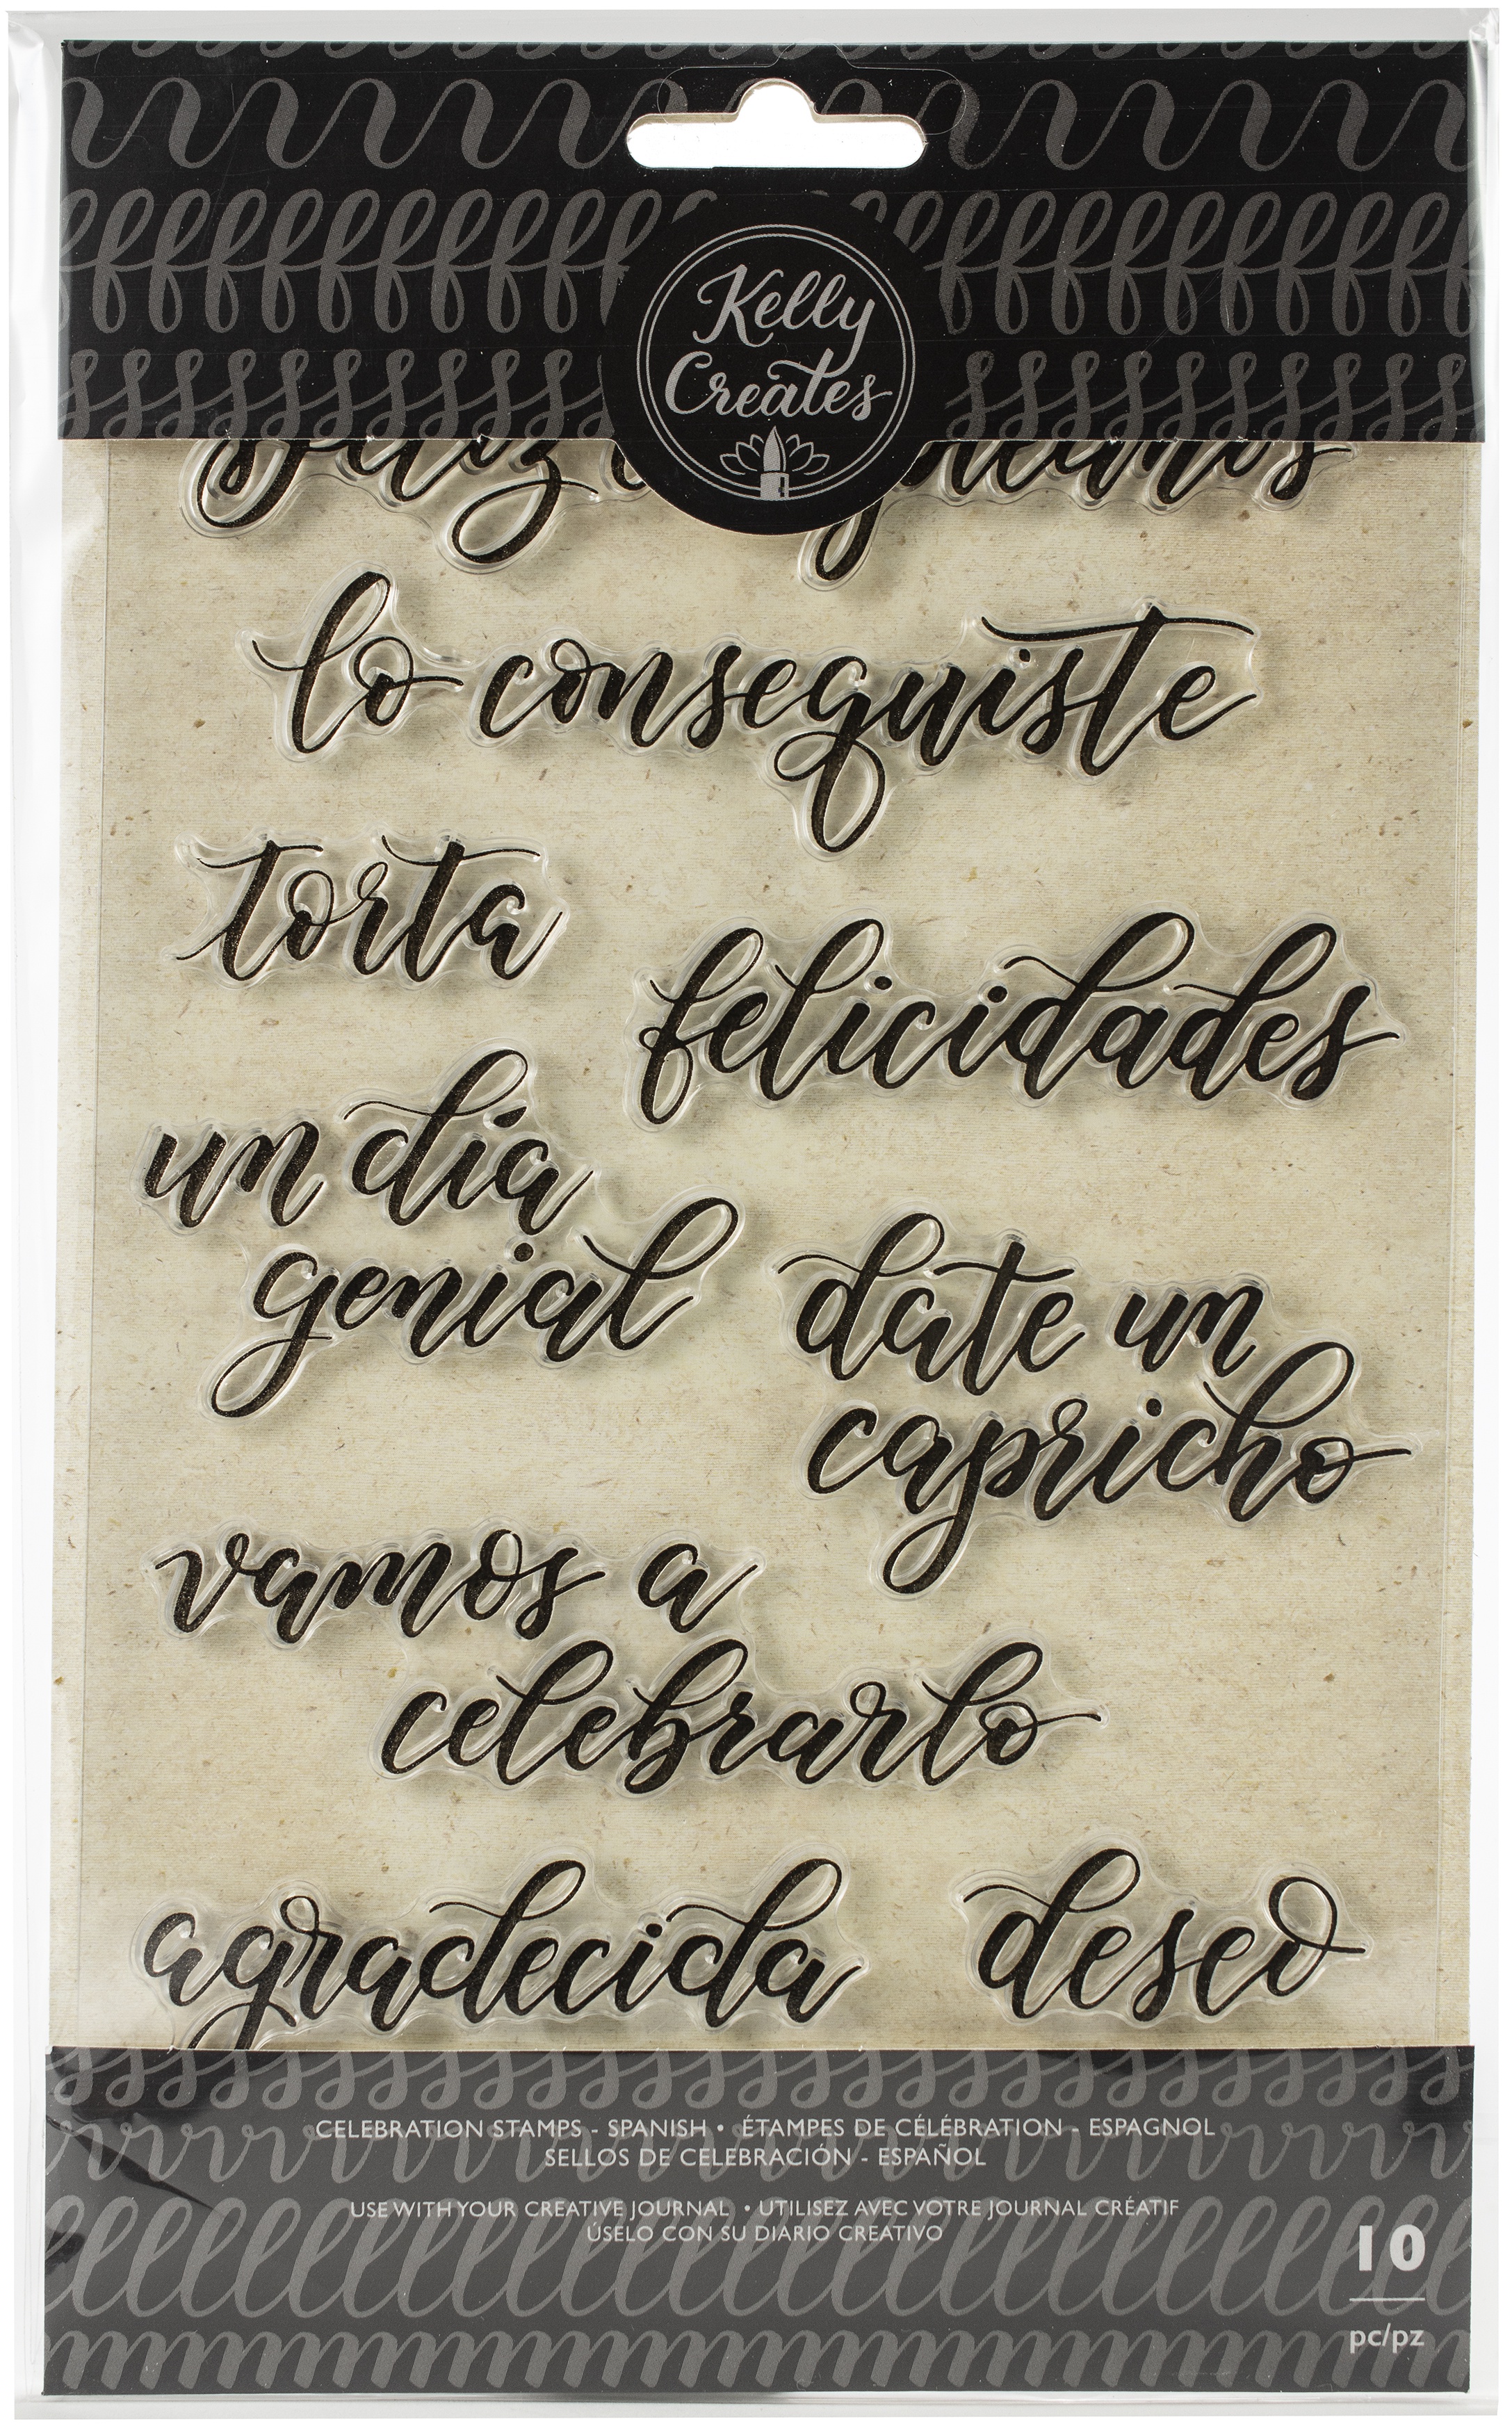 Kelly
Creates
feliz
lo conseguiste
torta
felicidades
un día
genial
date un
capricho
vamos a
celebrarlo
agradecida
deseo
CELEBRATION STAMPS - SPANISH • ÉTAMPES DE CÉLÉBRATION - ESPAGNOL
SELLOS DE CELEBRACIÓN - ESPAÑOL
USE WITH YOUR CREATIVE JOURNAL • UTILISEZ AVEC VOTRE JOURNAL CRÉATIF
ÚSELO CON SU DIARIO CREATIVO
10
pc/pz